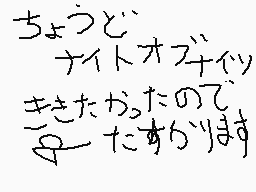 ちょうど
ナイトオブナイツ
ききたかったので
たすかります